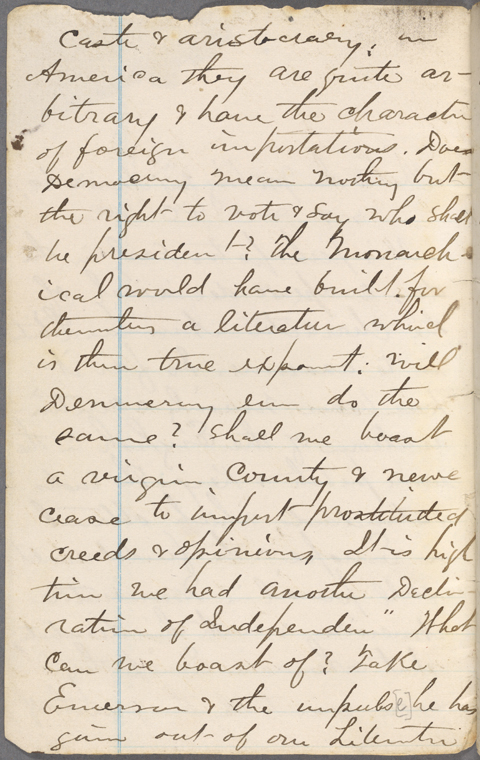 Caste & aristocracy; in
America they are quite ar-
bitrary & have the character
of foreign importations. Does
Democracy mean nothing but
the right to vote & say who shall
be president? The Monarch-
ical world have built for
themselves a literature which
is their true exponent; will
Democracy ever do the
same? Shall we boast
a virgin County & never
cease to import prostituted
creeds & opinions, It is high
time we had another Decla-
ration of Independence" What
can we boast of? Take
Emerson & the impulse he has
given out of our Literature